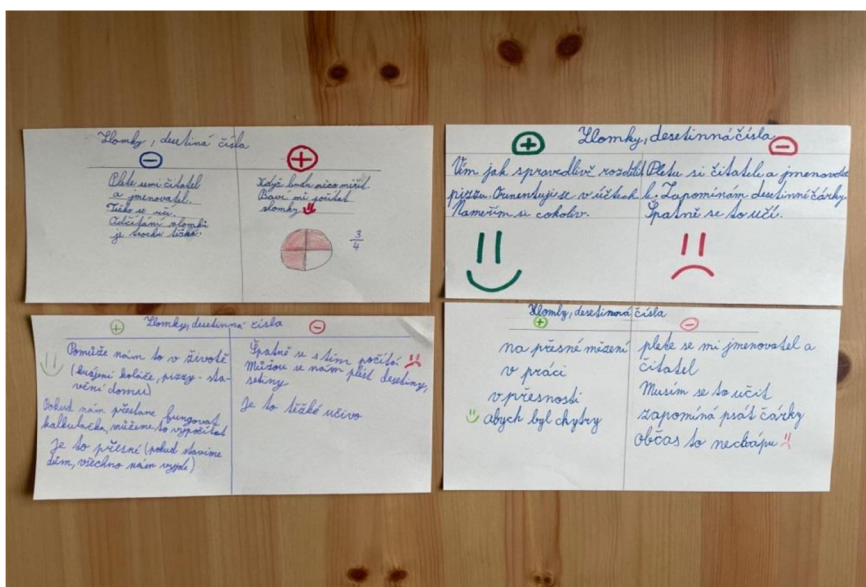 Zlomky, desetiná čísla
Plete semi čitatel
a jmenovatel.
Těžko se učí.
Odčítání zlomků
je trochu těžké.
Když budu něco měřit.
Baví mi počítat
zlomky.
3
4
Zlomky, desetinná čísla
Vím jak spravedlivě rozdělit
pizzu. Orientuji se v účtech
Naměřím si cokoliv.
Pletu si čitatele a jmenovate
l. Zapomínám desetinné čárky.
Špatně se to učí.
Zlomky, desetinná čísla
Pomůže nám to v životě
(krájení koláče, pizzy - sta-
vění domu)
Pokud nám přestane fungovat
kalkulačka, můžeme to vypočítat
Je to přesné (pokud stavíme
dům, všechno nám vyjde)
Špatně se s tím počítá
Můžou se nám plést desetiny,
setiny
Je to těžké učivo
Zlomky, desetinová čísla
na přesné měření
v práci
v přesnosti
abych byl chytry
plete se mi jmenovatel a
čitatel
Musím se to učit
zapomíná psát čárky
občas to nechápu